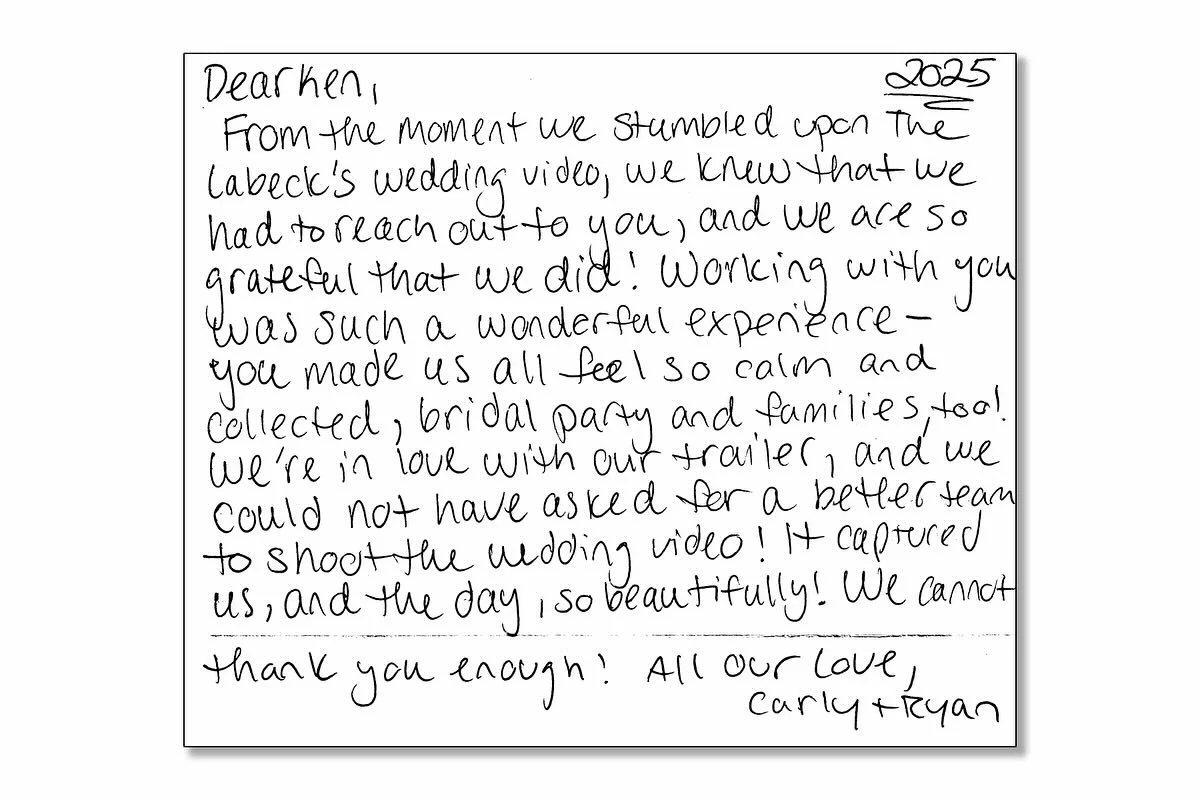 2025
Dear Ken,
From the moment we stumbled upon The
Labeck's wedding video, we knew that we
had to reach out to you, and we are so
grateful that we did! Working with you
was such a wonderful experience –
you made us all feel so calm and
collected, bridal party and families, too!
We're in love with our trailer, and we
could not have asked for a better team
to shoot the wedding video! It captured
us, and the day, so beautifully! We cannot
thank you enough! All our love,
Carly + Ryan